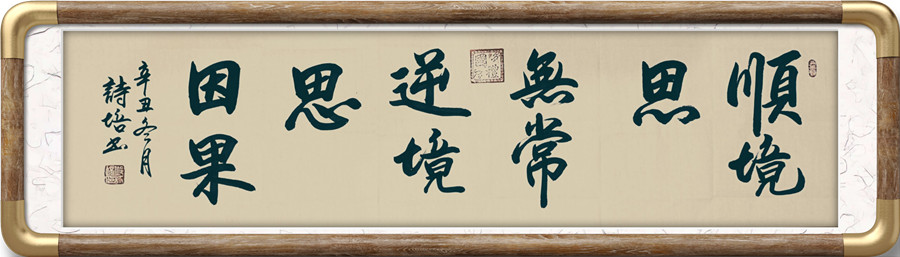 順境
思
無常
逆境
思
因果
辛丑冬月
詩培书